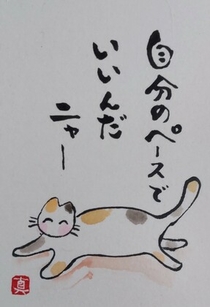 自分のペースで
いいんだ
ニャー
真